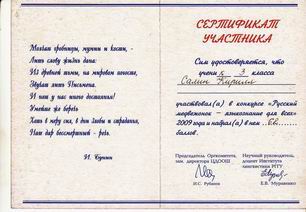 Молчат гробницы, мумии и кости, -
Лишь слову жизнь дана:
Из древней тьмы, на мировом погосте,
Звучат лишь Письмена.
И нет у нас иного достоянья!
Умейте же беречь
Хоть в меру сил, в дни злобы и страданья,
Наш дар бессмертный - речь.
И. Бунин
СЕРТИФИКАТ
УЧАСТНИКА
Сим удостоверяется, что
ученик 3 класса
Салин Кирилл
участвовал(а) в конкурсе «Русский
медвежонок – языкознание для всех»
2009 года и набрал(а) в нем 62
баллов.
Председатель Оргкомитета,
зам. директора ЦДООШ
И.С. Рубанов
Научный руководитель,
доцент Института
лингвистики РГГУ
Е.В. Муравенко